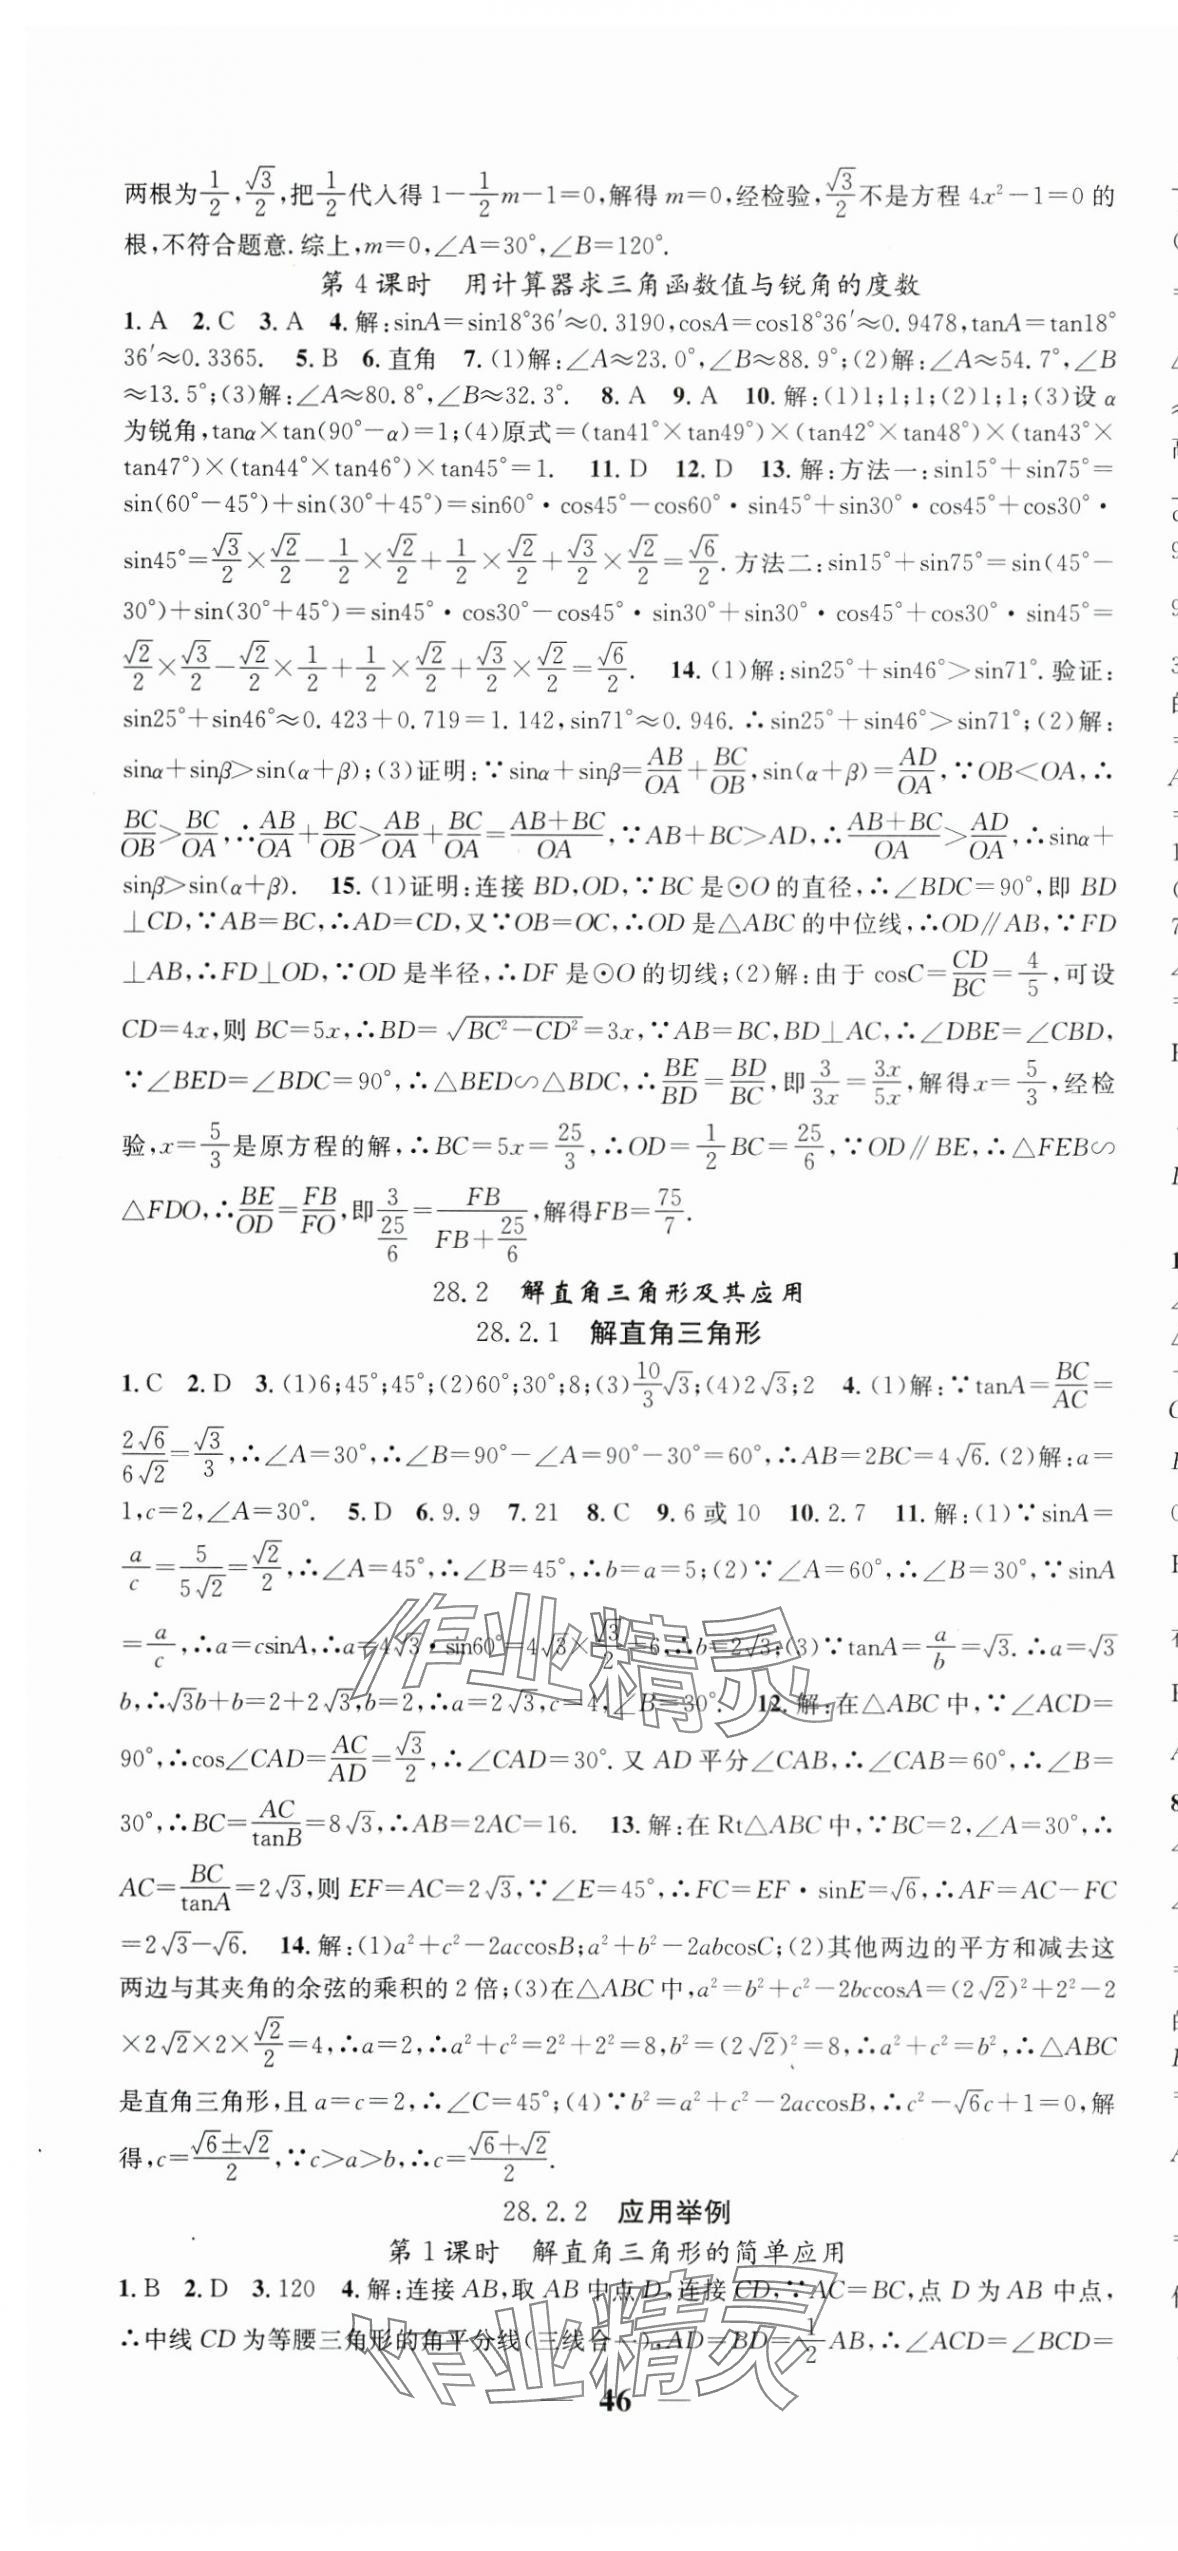 两根为1/2,√3/2,把1/2代入得1-1/2m-1=0,解得m=0,经检验,√3/2不是方程4x²-1=0的
根,不符合题意.综上,m=0,∠A=30°,∠B=120°.
第4课时 用计算器求三角函数值与锐角的度数
1. A 2. C 3. A 4. 解:sinA=sin18°36′≈0.3190,cosA=cos18°36′≈0.9478,tanA=tan18°
36′≈0.3365. 5. B 6. 直角 7. (1)解:∠A≈23.0°,∠B≈88.9°;(2)解:∠A≈54.7°,∠B
≈13.5°;(3)解:∠A≈80.8°,∠B≈32.3°. 8. A 9. A 10. 解:(1)1;1;1;(2)1;1;(3)设α
为锐角,tanα×tan(90°-α)=1;(4)原式=(tan41°×tan49°)×(tan42°×tan48°)×(tan43°×
tan47°)×(tan44°×tan46°)×tan45°=1. 11. D 12. D 13. 解:方法一:sin15°+sin75°=
sin(60°-45°)+sin(30°+45°)=sin60°·cos45°-cos60°·sin45°+sin30°·cos45°+cos30°·
sin45°=√3/2×√2/2-1/2×√2/2+1/2×√2/2+√3/2×√2/2=√6/2.方法二:sin15°+sin75°=sin(45°-
30°)+sin(30°+45°)=sin45°·cos30°-cos45°·sin30°+sin30°·cos45°+cos30°·sin45°=
√2/2×√3/2-√2/2×1/2+1/2×√2/2+√3/2×√2/2=√6/2. 14. (1)解:sin25°+sin46°>sin71°.验证:
sin25°+sin46°≈0.423+0.719=1.142,sin71°≈0.946.∴sin25°+sin46°>sin71°;(2)解:
sinα+sinβ>sin(α+β);(3)证明:∵sinα+sinβ=AB/OA+BC/OB,sin(α+β)=AD/OA,∵OB<OA,∴
BC/OB>BC/OA,∴AB/OA+BC/OB>AB/OA+BC/OA=(AB+BC)/OA,∵AB+BC>AD,∴(AB+BC)/OA>AD/OA,∴sinα+
sinβ>sin(α+β). 15. (1)证明:连接BD,OD,∵BC是⊙O的直径,∴∠BDC=90°,即BD
⊥CD,∵AB=BC,∴AD=CD,又∵OB=OC,∴OD是△ABC的中位线,∴OD∥AB,∵FD
⊥AB,∴FD⊥OD,∵OD是半径,∴DF是⊙O的切线;(2)解:由于cosC=CD/BC=4/5,可设
CD=4x,则BC=5x,∴BD=√(BC²-CD²)=3x,∵AB=BC,BD⊥AC,∴∠DBE=∠CBD,
∵∠BED=∠BDC=90°,∴△BED∽△BDC,∴BE/BD=BD/BC,即3/3x=3x/5x,解得x=5/3,经检
验,x=5/3是原方程的解,∴BC=5x=25/3,∴OD=1/2BC=25/6,∵OD∥BE,∴△FEB∽
△FDO,∴BE/OD=FB/FO,即3/(25/6)=FB/(FB+25/6),解得FB=75/7.
28.2 解直角三角形及其应用
28.2.1 解直角三角形
1. C 2. D 3. (1)6;45°;45°;(2)60°;30°;8;(3)10/3√3;(4)2√3;2 4. (1)解:∵tanA=BC/AC=
2√6/6√2=√3/3,∴∠A=30°,∴∠B=90°-∠A=90°-30°=60°,∴AB=2BC=4√6.(2)解:a=
1,c=2,∠A=30°. 5. D 6. 9.9 7. 21 8. C 9. 6或10 10. 2.7 11. 解:(1)∵sinA=
a/c=5/5√2=√2/2,∴∠A=45°,∴∠B=45°,∴b=a=5;(2)∵∠A=60°,∴∠B=30°,∵sinA
=a/c,∴a=csinA,∴a=4√3·sin60°=4√3×√3/2=6,∴b=2√3;(3)∵tanA=a/b=√3.∴a=√3
b,∴√3b+b=2+2√3,b=2,∴a=2√3,c=4,∠B=30°. 12. 解:在△ABC中,∵∠ACD=
90°,∴cos∠CAD=AC/AD=√3/2,∴∠CAD=30°.又AD平分∠CAB,∴∠CAB=60°,∴∠B=
30°,∴BC=AC/tanB=8√3,∴AB=2AC=16. 13. 解:在Rt△ABC中,∵BC=2,∠A=30°,∴
AC=BC/tanA=2√3,则EF=AC=2√3,∵∠E=45°,∴FC=EF·sinE=√6,∴AF=AC-FC
=2√3-√6. 14. 解:(1)a²+c²-2accosB;a²+b²-2abcosC;(2)其他两边的平方和减去这
两边与其夹角的余弦的乘积的2倍;(3)在△ABC中,a²=b²+c²-2bccosA=(2√2)²+2²-2
×2√2×2×√2/2=4,∴a=2,∴a²+c²=2²+2²=8,b²=(2√2)²=8,∴a²+c²=b²,∴△ABC
是直角三角形,且a=c=2,∴∠C=45°;(4)∵b²=a²+c²-2accosB,∴c²-√6c+1=0,解
得,c=(√6±√2)/2,∵c>a>b,∴c=(√6+√2)/2.
28.2.2 应用举例
第1课时 解直角三角形的简单应用
1. B 2. D 3. 120 4. 解:连接AB,取AB中点D,连接CD,∵AC=BC,点D为AB中点,
∴中线CD为等腰三角形的角平分线(三线合一),AD=BD=1/2AB,∴∠ACD=∠BCD=
46
作业精灵
作业精灵